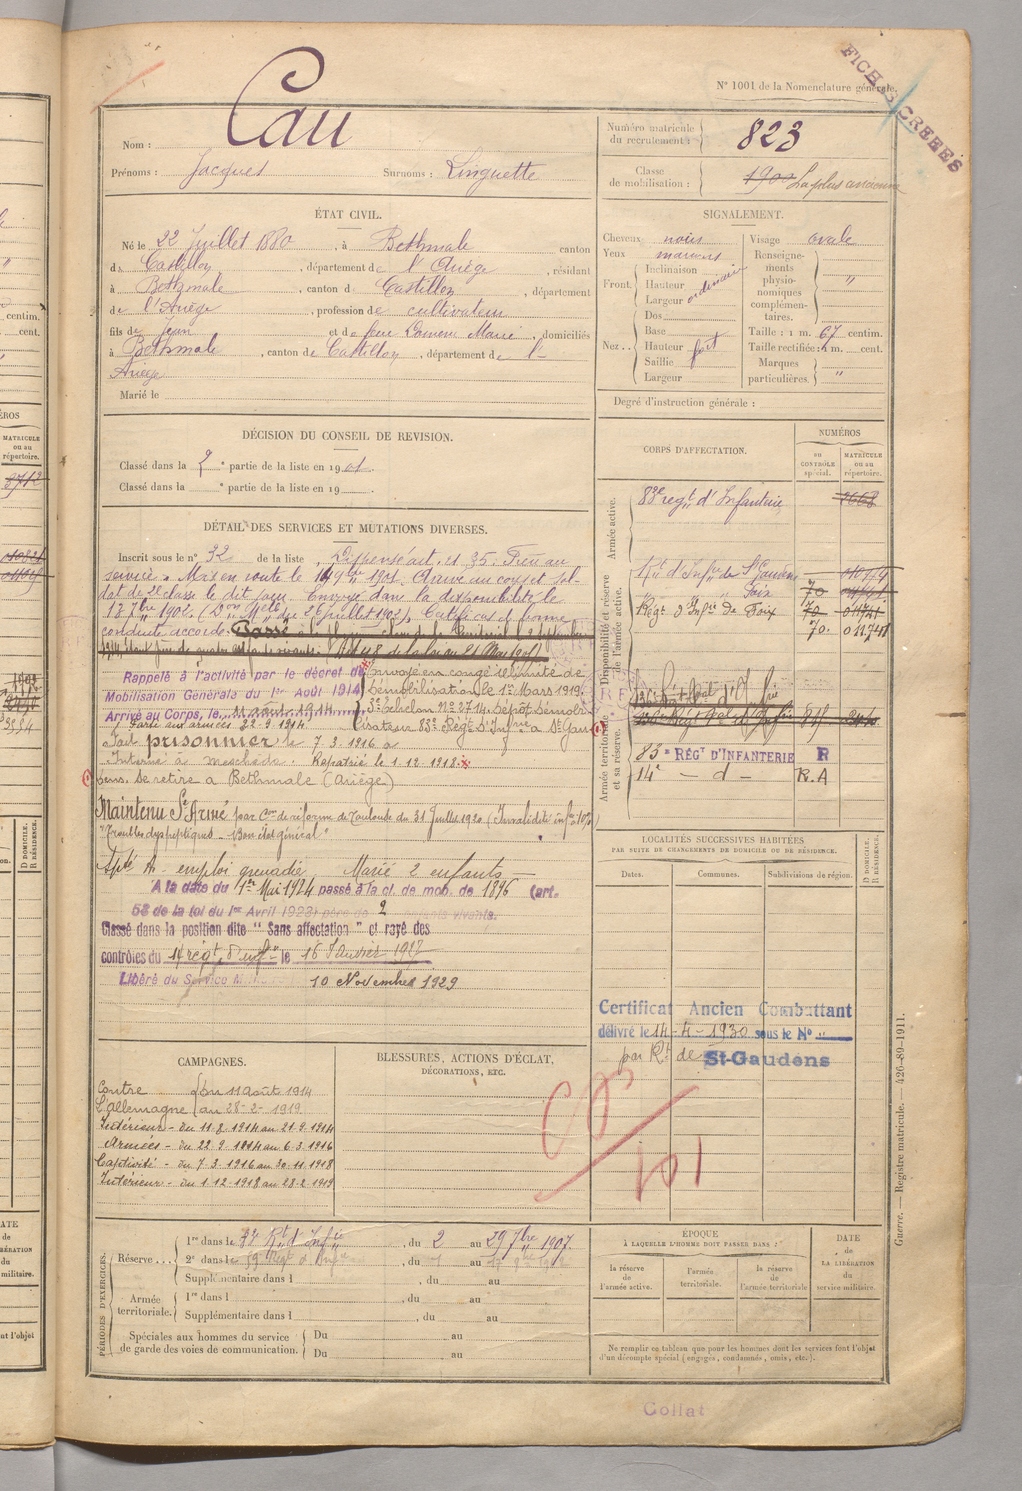 FICHES CRÉÉES
N° 1001 de la Nomenclature générale.
Nom : Cau
Prénoms : Jacques Surnoms : Linguette
Numéro matricule du recrutement : 823
Classe de mobilisation : 1900 La plus ancienne
ÉTAT CIVIL.
Né le 22 Juillet 1880, à Bethmale canton
de Castillon, département de l'Ariège, résidant
à Bethmale, canton de Castillon, département
de l'Ariège, profession de cultivateur
fils de Jean et de feue Domenc Marie, domiciliés
à Bethmale, canton de Castillon, département de l'
Ariège
Marié le
SIGNALEMENT.
Cheveux noirs
Yeux marrons
Front. Inclinaison Hauteur Largeur ordinaire
Nez. Dos Base Hauteur Saillie Largeur fort
Visage ovale
Renseignements physionomiques complémentaires. "
Taille : 1 m. 67 centim.
Taille rectifiée : 1 m. cent.
Marques particulières. "
Degré d'instruction générale :
DÉCISION DU CONSEIL DE REVISION.
Classé dans la 2e partie de la liste en 1901.
Classé dans la e partie de la liste en 19
DÉTAIL DES SERVICES ET MUTATIONS DIVERSES.
Inscrit sous le n° 32 de la liste Dispensé art.
service. Mis en route le 14 9bre 1901. Arrivé au corps et sol-
dat de 2e classe le dit jour. Envoyé dans la disponibilité le
Certificat de bonne
conduite accordé. Passé
Rappelé à l'activité par le décret de
Mobilisation Générale du 1er Août 1914
Arrivé au Corps, le 11 août 1914
Parti aux armées 22-9-1914
Fait prisonnier le 7-3-1916 à
Interné à Meschede. Rapatrié le 1-12-1918
Envoyé en congé illimité de
démobilisation le 1er Mars 1919
3e échelon N° 2714 Dépôt démobi-
lisateur 83e Régt d'Infrie à St Gau-
dens. Se retire à Bethmale (Ariège)
Maintenu Sce Armé par Con de réforme de Toulouse du 31 Juillet 1920 (Invalidité infre 10%)
"Troubles dyspeptiques - Bon état général"
Apte A - emploi grenadier Marié 2 enfants
A la date du 1er Mai 1924 passé à la cl. de mob. de 1896 (art.
58 de la loi du 1er Avril 1923) père de 2 enfants vivants.
Classé dans la position dite "Sans affectation" et rayé des
contrôles du 14 régt d'Inftie le 16 Janvier 1927
Libéré du Service 10 Novembre 1929
CORPS D'AFFECTATION.
NUMÉROS
AU CONTRÔLE spécial.
MATRICULE ou au répertoire.
Armée active.
Disponibilité et réserve de l'armée active.
Armée territoriale et sa réserve.
83e régt d'Infanterie
Rt d'Infie de St Gaudens
Foix 70
Régt d'Infie de Foix 70
70.
83e RÉGT D'INFANTERIE R
14e - d - R.A
LOCALITÉS SUCCESSIVES HABITÉES
PAR SUITE DE CHANGEMENTS DE DOMICILE OU DE RÉSIDENCE.
Dates. Communes. Subdivisions de région.
D DOMICILE, R RÉSIDENCE.
Certificat Ancien Combattant
délivré le 14-4-1930 sous le N° "
par Rt de St-Gaudens
CAMPAGNES.
Contre l'Allemagne du 11 août 1914 au 28-2-1919
Intérieur - du 11.8.1914 au 21.9.1914
Armées - du 22.9.1914 au 6.3.1916
Captivité - du 7.3.1916 au 30.11.1918
Intérieur - du 1.12.1918 au 28.2.1919
BLESSURES, ACTIONS D'ÉCLAT,
DÉCORATIONS, ETC.
101
PÉRIODES D'EXERCICES.
Réserve
1re dans le Rt d'Infie, du 2 au 29 7bre 1907.
2e dans le 59 Régt d'Infie du au
Supplémentaire dans l , du au
Armée territoriale.
1re dans l , du au
Supplémentaire dans l , du au
Spéciales aux hommes du service de garde des voies de communication.
Du au
Du au
ÉPOQUE
À LAQUELLE L'HOMME DOIT PASSER DANS :
la réserve de l'armée active.
l'armée territoriale.
la réserve de l'armée territoriale
DATE de LA LIBÉRATION du service militaire.
Ne remplir ce tableau que pour les hommes dont les services font l'objet
d'un décompte spécial (engagés, condamnés, omis, etc.).
Guerre. — Registre matricule. — 426-89-1911.
Collat